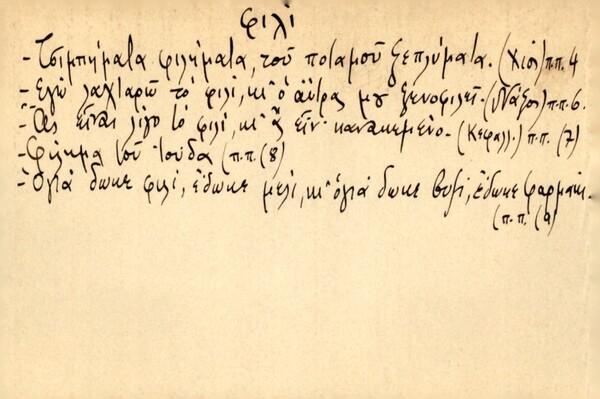 φιλί
- Τσιμπήματα φιλήματα, τοῦ ποταμοῦ ξεπλύματα. (Χίος) π.π. 4
- Ἐγὼ λαχταρῶ τὸ φιλί, κι' ὁ ἄντρας μου ξενοφιλεῖ. (Νάξος) π.π. 6.
- Ἂς εἶναι λίγο τὸ φιλί, κι' ἂς εἶν' κανακεμένο. (Κεφαλλ.) π.π. (7)
- Φίλημα τοῦ Ἰούδα (π.π. (8)
- Ὁγιά δωκε φιλί, ἔδωκε μέλι, κι' ὁγιά δωκε βυζί, ἔδωκε φαρμάκι.
(π.π. (9)